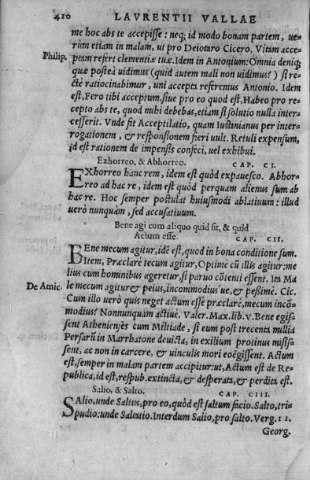 410 LAVRENTII VALLAE
me hoc abs te accepisse: neq; id modo bonam partem, ue-
rum etiam in malam, ut pro Deiotaro Cicero, Vitium acce-
Philip. ptum referre clementiæ tuæ. Idem in Antonium: Omnia deniq;
quæ posteà uidimus (quid autem mali non uidimus?) si re-
ctè ratiocinabimur, uni accepta referemus Antonio. Idem
est, Fero tibi acceptum. siue pro eo quod est, Habeo pro re-
cepto abs te, quod mihi debebas, etiam si solutio nulla inter-
cesserit. Vnde fit Acceptilatio, quam Iustinianus per inter-
rogationem, & responsionem fieri uult. Retuli expensum,
id est rationem de impensis confeci, uel exhibui.
Exhorreo, & Abhorreo. CAP. CI.
EXhorreo hanc rem, idem est quòd expauesco. Abhor-
reo ad hac re, idem est quòd perquam alienus sum ab
hac re. Hoc semper postulat huiusmodi ablatiuum: illud
uerò nunquam, sed accusatiuum.
Bene agi cum aliquo quid sit, & quid
Actum esse. CAP. CII.
BEne mecum agitur, idẽ est, quod in bona conditione sum.
Item, Præclarè tecum agitur, Optimè cũ illis agitur: me
lius cum hominibus ageretur, si paruo cõtenti essent. In Ma
De Amic. le mecum agitur & peius, incommodius ue, & pessimè. Cic.
Cum illo uerò quis neget actum esse præclarè, mecum incõ-
modius? Nonnunquam actiuè. Valer. Max. lib. v. Bene egis-
sent Athenienses cum Miltiade, si eum post trecenta millia
Persarũ in Marrhatone deuicta, in exilium protinus misis-
sent, ac non in carcere, & uinculis mori coëgissent. Actum
est, semper in malam partem accipitur: ut, Actum est de Re-
publica, id est, respub. extincta, & desperata, & perdita est.
Salio, & Salto. CAP. CIII.
SAlio, unde Saltus, pro eo, quòd est saltum facio. Salto, tri-
pudio: unde Saltatio. Interdum Salio, pro salto. Verg. 11.
Georg.